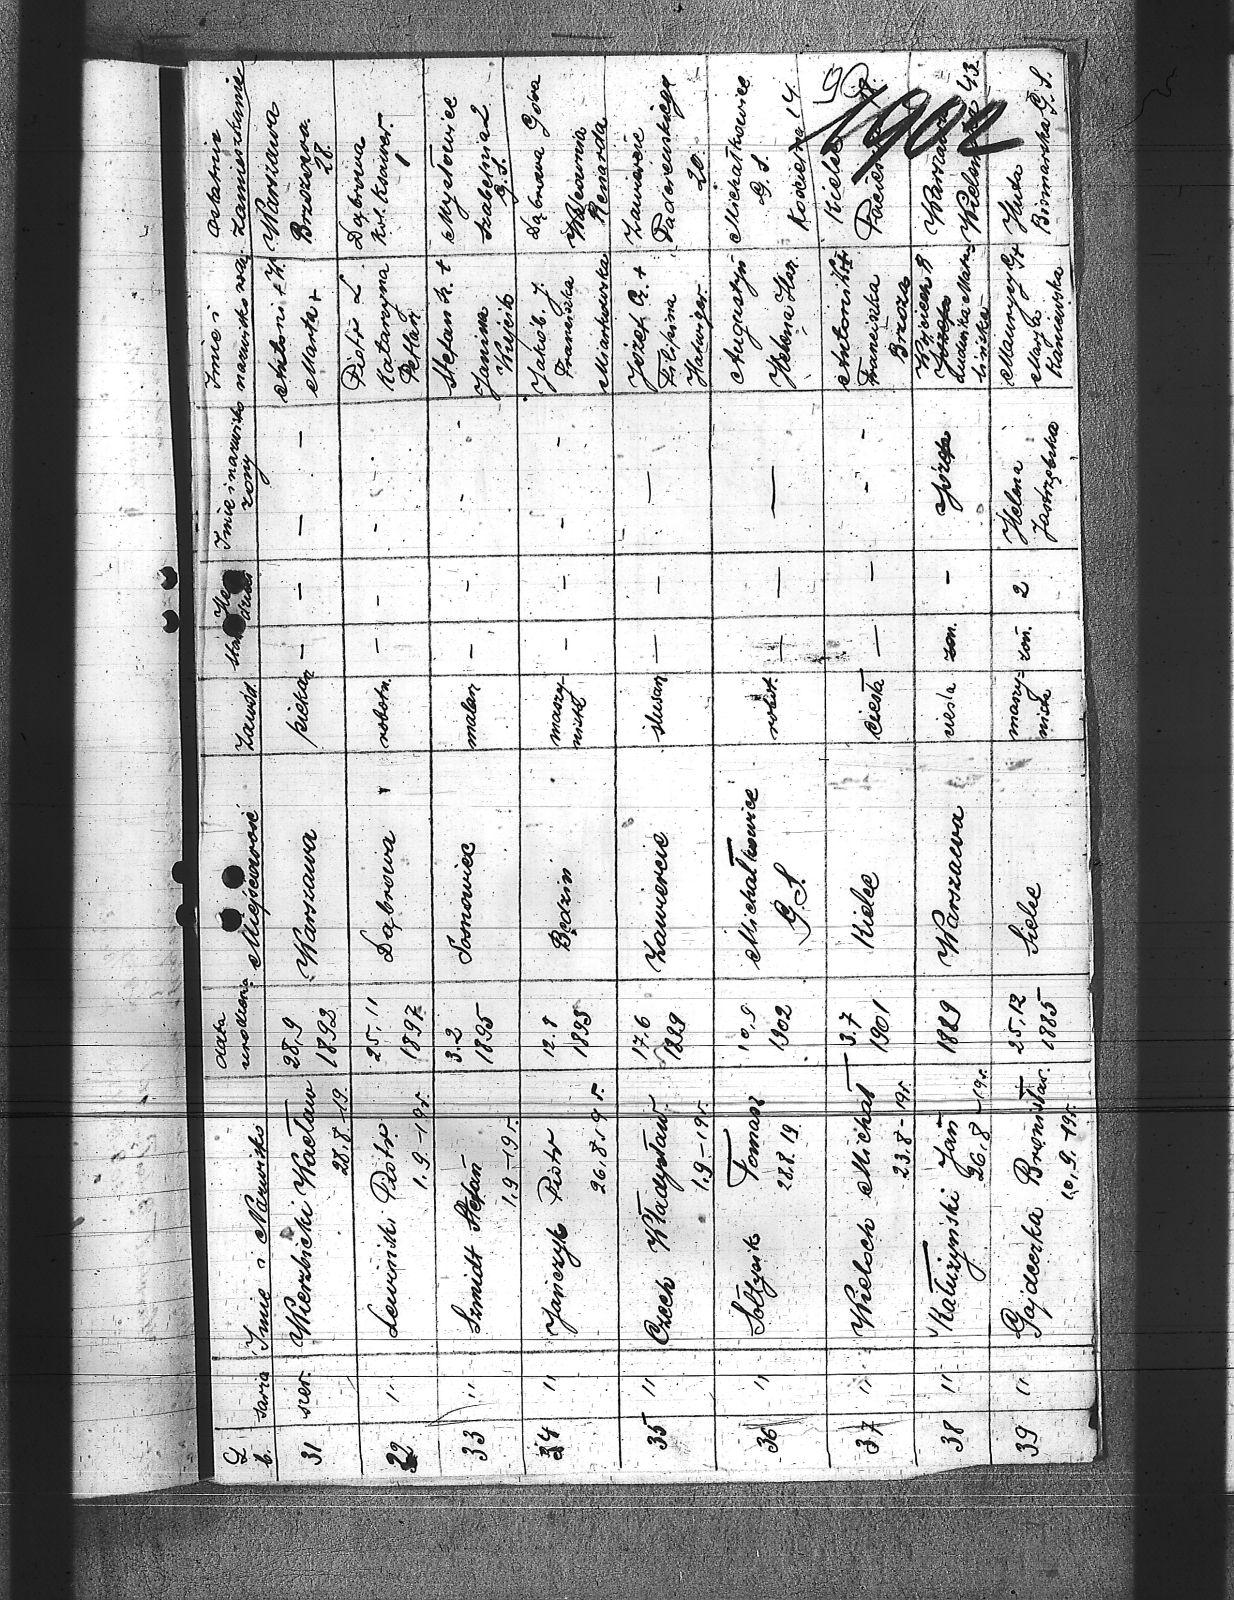 90
1902
L. b.
szarża
Imię i Nazwisko
data urodzenia
Miejscowość
Zawód
Stan
Ile dzieci
Imię i nazwisko żony
Imię i nazwisko rodz.
Ostatnie Zamieszkanie
31
szer.
Wierzbicki Wacław
28.8-19.
28.9
1892
Warszawa
piekarz
—
—
— —
Antoni + K.
Marta +
Warszawa
Brzozowa
28.
32
"
Lewiński Piotr
1.9-19r.
25.11
1897.
Dąbrowa
robotn.
—
-
- -
Piotr L.
Katarzyna
Dąbrowa
1
33
"
Szmidt Stefan
1.9-19r.
3.2
1895
Sosnowiec
malarz
—
-
- -
Stefan +
Janina
Wójcik
Mysłowice
Szabelnia 2
G.S.
34
"
Jańczyk Piotr
26.8.19r.
12.8
1895
Będzin
maszy-
nista
—
-
- -
Jakób J.
Franciszka
Dąbrowa Góra
Renarda
35
"
Czech Władysław
1.9-19r.
17.6
1899
Zawiercie
ślusarz
—
-
—
Józef Cz. +
Zawiercie
Paderewskiego
20
36
"
Sołtysik Tomasz
28.8.19
10.9
1902
Michałkowice
G.S.
robot.
—
—
—
Augustyn
Helena
Michałkowice
G.S.
Kościelna 14
37
"
Wieloch Michał
23.8-19r.
3.7
1901
Kielce
cieśla
—
—
- -
Antoni
Franciszka
Brzoza
Kielce
38
"
Kałużyński Jan
26.8-19r.
1889
Warszawa
cieśla
żon.
-
Józefa
Wojciech
Józefa
Warszawa
43
39
"
Gajdeczka Bronisław.
10.9.-19r.
25.12
1885
Sielce
maszy-
nista
żon.
2
Helena
Jastrzębska
Maurycy G+
Marja
Huta
Bismarska G.S.